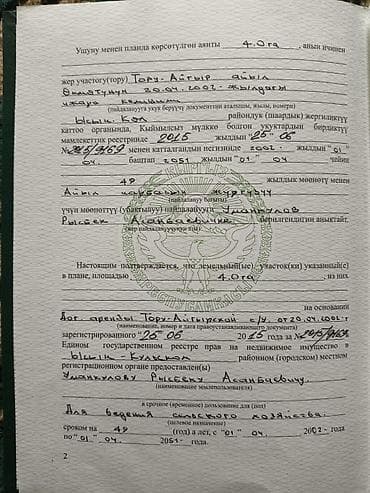 Ушуну менен планда көрсөтүлгөн аянты 4.0га, анын ичинен
жер участогу(тору) Тору-Айгыр айыл
Өкмөтүнүн 20.04.2002-жылдагы
ижара келишими
(жер пайдаланууга укук берүүчү документтин аталышы, жылы, номери)
Ысык-Көл райондук (шаардык) жергиликтүү
каттоо органында, Кыймылсыз мүлккө болгон укуктардын бирдиктүү
мамлекеттик реестринде 2015 жылдын "25" 06
менен катталгандын негизинде 2002- жылдын "01"
04. баштап 2051 жылдын "01" 04 чейин
49 жылдык мөөнөтү менен
Айыл чарбасын жүргүзүү
(пайдалануу багыты)
үчүн мөөнөттүү (убактылуу) пайдаланууга
Рысбек Асанбаевичке берилгендигин аныктайт.
(жер пайдалануучунун аты)
Настоящим подтверждается, что земельный(ые) участок(ки) указанный(е)
в плане, площадью 4.0га, из них
на основании
Дог. аренды Тору-Айгырской с/у. от 20.04.2002-г
(наименование, номер и дата правоустанавливающего документа)
зарегистрированного "25" 06 2015 года за №
Едином государственном реестре прав на недвижимое имущество в
Ысык-Кульском районном (городском) местном
регистрационном органе предоставлен(ы)
Уманкулову Рысбеку Асанбаевичу.
(наименование землепользователя)
в срочное (временное) пользование для (под)
Для ведения сельского хозяйства.
(целевое назначение)
сроком на 49 (год) а лет, с "01" 04. 2002- года
по "01" 04. 2051- года.
2